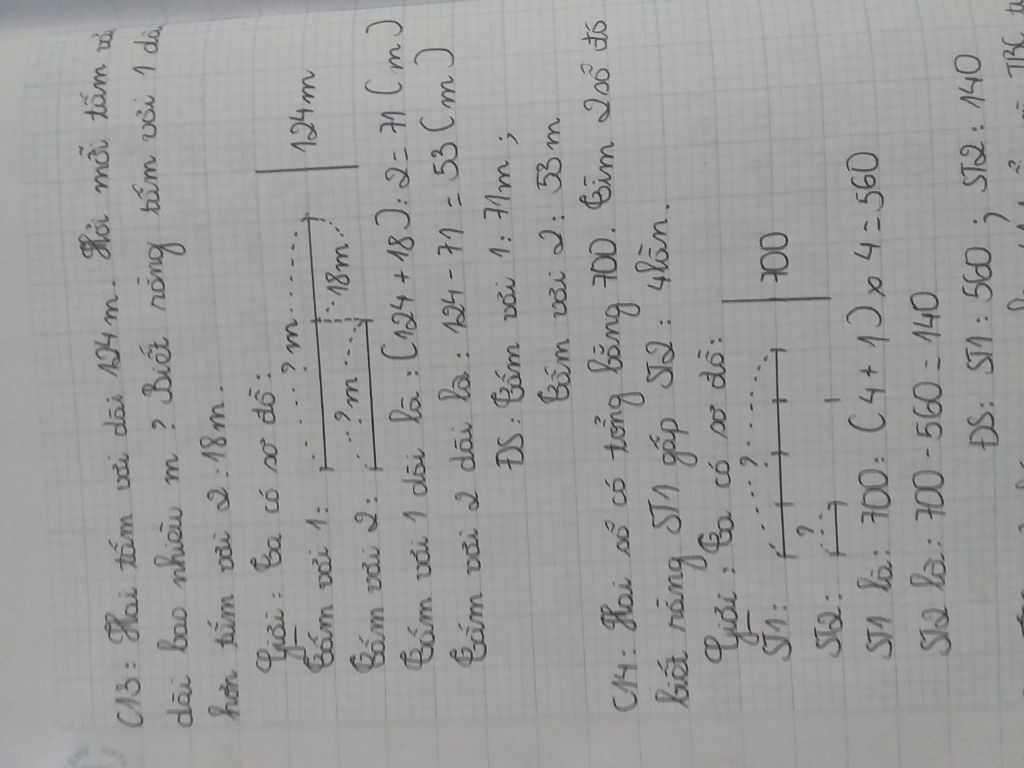 C13: Hai tấm vải dài 124m. Hỏi mỗi tấm vải
dài bao nhiêu m? Biết rằng tấm vải 1 dài
hơn tấm vải 2: 18m.
Giải: Ta có sơ đồ:
Tấm vải 1: ?m
Tấm vải 2: ?m 18m 124m
Tấm vải 1 dài là: (124 + 18) : 2 = 71 (m)
Tấm vải 2 dài là: 124 - 71 = 53 (m)
ĐS: Tấm vải 1: 71m;
Tấm vải 2: 53m
C14: Hai số có tổng bằng 700. Tìm 2 số đó
biết rằng ST1 gấp ST2: 4 lần.
Giải: Ta có sơ đồ:
ST1: ?
ST2: ? 700
ST1 là: 700 : (4 + 1) x 4 = 560
ST2 là: 700 - 560 = 140
ĐS: ST1: 560; ST2: 140